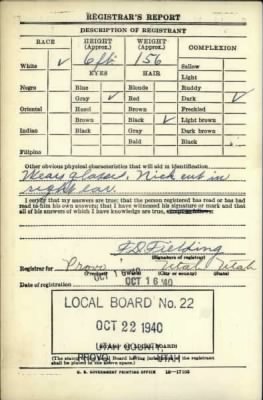 REGISTRAR'S REPORT
DESCRIPTION OF REGISTRANT
RACE HEIGHT (Approx.) WEIGHT (Approx.) COMPLEXION
White ✓ 6 ft 156 Sallow
EYES HAIR Light
Negro Blue Blonde Ruddy
Gray ✓ Red Dark ✓
Oriental Hazel Brown Freckled
Brown Black ✓ Light brown
Indian Black Gray Dark brown
Bald Black
Filipino
Other obvious physical characteristics that will aid in identification
Wears glasses, Nick cut in
right ear.
I certify that my answers are true; that the person registered has read or has had
read to him his own answers; that I have witnessed his signature or mark and that
all of his answers of which I have knowledge are true,
Fielding
(Signature of registrar)
Registrar for Provo Utah Utah
OCT 16 '40
Date of registration OCT 16 '40
LOCAL BOARD No. 22
OCT 22 1940
UTAH COUNTY,
PROVO, UTAH
U. S. GOVERNMENT PRINTING OFFICE